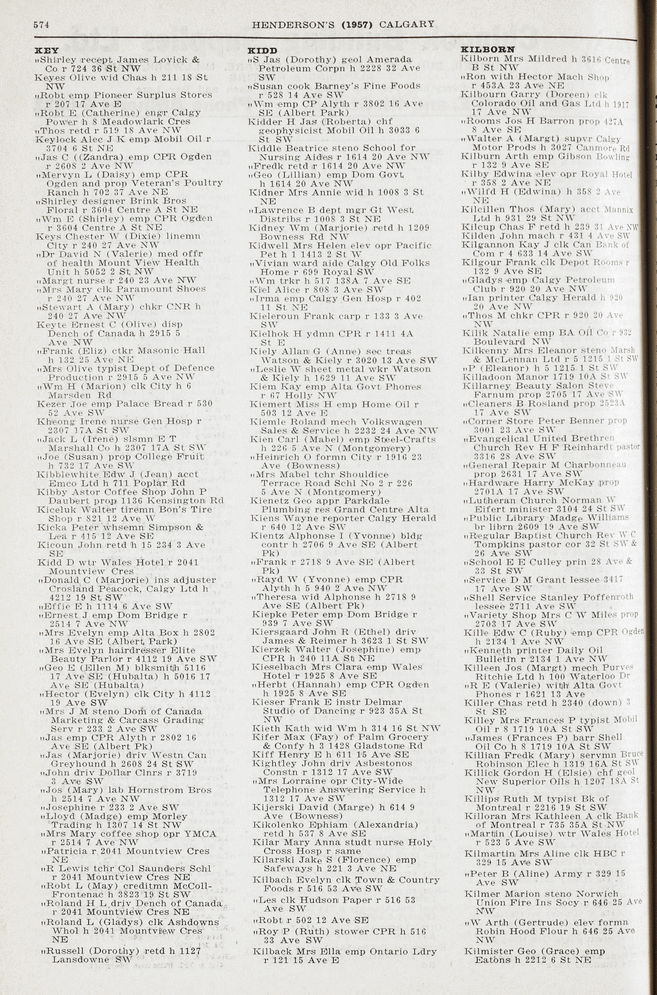 574
HENDERSON'S (1957) CALGARY
KEY
„Shirley recept James Lovick &
Co r 724 36 St NW
Keyes Olive wid Chas h 211 18 St
NW
„Robt emp Pioneer Surplus Stores
r 207 17 Ave E
„Robt E (Catherine) engr Calgy
Power h 8 Meadowlark Cres
„Thos retd r 519 18 Ave NW
Keylock Alec J K emp Mobil Oil r
3704 6 St NE
„Jas C ((Zandra) emp CPR Ogden
r 2608 2 Ave NW
„Mervyn L (Daisy) emp CPR
Ogden and prop Veteran's Poultry
Ranch h 702 37 Ave NE
„Shirley designer Brink Bros
Floral r 3604 Centre A St NE
„Wm E (Shirley) emp CPR Ogden
r 3604 Centre A St NE
Keys Chester W (Dixie) linemn
City r 240 27 Ave NW
„Dr David N (Valerie) med offr
of health Mount View Health
Unit h 5052 2 St NW
„Margt nurse r 240 23 Ave NW
„Mrs Mary clk Paramount Shoes
r 240 27 Ave NW
„Stewart A (Mary) chkr CNR h
240 27 Ave NW
Keyte Ernest C (Olive) disp
Dench of Canada h 2915 5
Ave NW
„Frank (Eliz) ctkr Masonic Hall
h 132 25 Ave NE
„Mrs Olive typist Dept of Defence
Production r 2915 5 Ave NW
„Wm H (Marion) clk City h 6
Marsden Rd
Kezer Joe emp Palace Bread r 530
52 Ave SW
Kheong Irene nurse Gen Hosp r
2307 17A St SW
„Jack L (Irene) slsmn E T
Marshall Co h 2307 17A St SW
„Joe (Susan) prop College Fruit
h 732 17 Ave SW
Kibblewhite Edw J (Jean) acct
Emco Ltd h 711 Poplar Rd
Kibby Astor Coffee Shop John P
Daubert prop 1136 Kensington Rd
Kiceluk Walter tiremn Bon's Tire
Shop r 821 12 Ave W
Kicka Peter whsemn Simpson &
Lea r 415 12 Ave SE
Kicoun John retd h 15 234 3 Ave
SE
Kidd D wtr Wales Hotel r 2041
Mountview Cres
„Donald C (Marjorie) ins adjuster
Crosland Peacock, Calgary Ltd h
4212 19 St SW
„Effie E h 1114 6 Ave SW
„Ernest J emp Dom Bridge r
2514 7 Ave NW
„Mrs Evelyn emp Alta Box h 2802
16 Ave SE (Albert Park)
„Mrs Evelyn hairdresser Elite
Beauty Parlor r 4112 19 Ave SW
„Geo E (Ellen M) blksmith 5116
17 Ave SE (Hubalta) h 5016 17
Ave SE (Hubalta)
„Hector (Evelyn) clk City h 4112
19 Ave SW
„Mrs J M steno Dom of Canada
Marketing & Carcass Grading
Serv r 233 2 Ave SW
„Jas emp CPR Alyth r 2802 16
Ave SE (Albert Pk)
„Jas (Marjorie) driv Westn Can
Greyhound h 2608 24 St SW
„John driv Dollar Clnrs r 3719
3 Ave SW
„Jos (Mary) lab Hornstrom Bros
h 2514 7 Ave NW
„Josephine r 233 2 Ave SW
„Lloyd (Madge) emp Morley
Trading h 1307 14 St NW
„Mrs Mary coffee shop opr YMCA
r 2514 7 Ave NW
„Patricia r 2041 Mountview Cres
NE
„R Lewis tchr Col Saunders Schl
r 2041 Mountview Cres NE
„Robt L (May) creditmn McColl-
Frontenac h 3823 19 St SW
„Roland H L driv Dench of Canada
r 2041 Mountview Cres NE
„Roland L (Gladys) clk Ashdowns
Whol h 2041 Mountview Cres
NE
„Russell (Dorothy) retd h 1127
Lansdowne SW
KIDD
„S Jas (Dorothy) geol Amerada
Petroleum Corpn h 2228 32 Ave
SW
„Susan cook Barney's Fine Foods
r 528 14 Ave SW
„Wm emp CP Alyth r 3802 16 Ave
SE (Albert Park)
Kidder H Jas (Roberta) chf
geophysicist Mobil Oil h 3033 6
St SW
Kiddie Beatrice steno School for
Nursing Aides r 1614 20 Ave NW
„Fredk retd r 1614 20 Ave NW
„Geo (Lillian) emp Dom Govt
h 1614 20 Ave NW
Kidner Mrs Annie wid h 1008 3 St
NE
„Lawrence B dept mgr Gt West
Distribs r 1008 3 St NE
Kidney Wm (Marjorie) retd h 1209
Bowness Rd NW
Kidwell Mrs Helen elev opr Pacific
Pet h 1 1413 2 St W
„Vivian ward aide Calgy Old Folks
Home r 699 Royal SW
„Wm trkr h 517 138A 7 Ave SE
Kiel Alice r 808 3 Ave SW
„Irma emp Calgy Gen Hosp r 402
11 St NE
Kieleroun Frank carp r 133 3 Ave
SW
Kielhok H ydmn CPR r 1411 4A
St E
Kiely Allan G (Anne) sec treas
Watson & Kiely r 3020 13 Ave SW
„Leslie W sheet metal wkr Watson
& Kiely h 1629 11 Ave SW
Kiem Kay emp Alta Govt Phones
r 67 Holly NW
Kiemert Miss H emp Home Oil r
503 12 Ave E
Kiemle Roland mech Volkswagen
Sales & Service h 2232 24 Ave NW
Kien Carl (Mabel) emp Steel-Crafts
h 226 5 Ave N (Montgomery)
„Heinrich O formn City r 1916 23
Ave (Bowness)
„Mrs Mabel tchr Shouldice
Terrace Road Schl No 2 r 226
5 Ave N (Montgomery)
Kienetz Geo appr Parkdale
Plumbing res Grand Centre Alta
Kiens Wayne reporter Calgy Herald
r 640 12 Ave SW
Kientz Alphonse I (Yvonne) bldg
contr h 2706 9 Ave SE (Albert
Pk)
„Frank r 2718 9 Ave SE (Albert
Pk)
„Rayd W (Yvonne) emp CPR
Alyth h 5 940 2 Ave NW
„Theresa wid Alphonse h 2718 9
Ave SE (Albert Pk)
Kiepke Peter emp Dom Bridge r
939 7 Ave SW
Kiersgaard John R (Ethel) driv
James & Reimer h 3623 1 St SW
Kierzek Walter (Josephine) emp
CPR h 240 11A St NE
Kieselbach Mrs Clara emp Wales
Hotel r 1925 8 Ave SE
„Herbt (Hannah) emp CPR Ogden
h 1925 8 Ave SE
Kieser Frank E instr Delmar
Studio of Dancing r 923 35A St
NW
Kieth Kath wid Wm h 314 16 St NW
Kifer Max (Fay) of Palm Grocery
& Confy h 3 1428 Gladstone Rd
Kiff Henry E h 611 15 Ave SE
Kightley John driv Asbestonos
Constn r 1312 17 Ave SW
„Mrs Lorraine opr City-Wide
Telephone Answering Service h
1312 17 Ave SW
Kijerski David (Marge) h 614 9
Ave (Bowness)
Kikolenko Ephiam (Alexandria)
retd h 537 8 Ave SE
Kilar Mary Anna studt nurse Holy
Cross Hosp r same
Kilarski Jake S (Florence) emp
Safeways h 221 3 Ave NE
Kilbach Evelyn clk Town & Country
Foods r 516 53 Ave SW
„Les clk Hudson Paper r 516 53
Ave SW
„Robt r 502 12 Ave SE
„Roy P (Ruth) stower CPR h 516
33 Ave SW
Kilback Mrs Ella emp Ontario Ldry
r 121 15 Ave E
KILBORN
Kilborn Mrs Mildred h 3616 Centre
B St NW
„Ron with Hector Mach Shop
r 453A 23 Ave NE
Kilbourn Garry (Doreen) clk
Colorado Oil and Gas Ltd h 1917
17 Ave NW
„Rooms Jos H Barron prop 427A
8 Ave SE
„Walter A (Margt) supvr Calgy
Motor Prods h 3027 Canmore Rd
Kilburn Arth emp Gibson Bowling
r 132 9 Ave SE
Kilby Edwina elev opr Royal Hotel
r 358 2 Ave NE
„Wilfd H (Edwina) h 358 2 Ave
NE
Kilcillen Thos (Mary) acct Mannix
Ltd h 931 29 St NW
Kilcup Chas F retd h 239 31 Ave NW
Kilden John mach r 431 4 Ave SW
Kilgannon Kay J clk Can Bank of
Com r 4 633 14 Ave SW
Kilgour Frank clk Depot Rooms r
132 9 Ave SE
„Gladys emp Calgy Petroleum
Club r 920 20 Ave NW
„Ian printer Calgy Herald h 920
20 Ave NW
„Thos M chkr CPR r 920 20 Ave
NW
Kilik Natalie emp BA Oil Co r 932
Boulevard NW
Kilkenny Mrs Eleanor steno Marsh
& McLennan Ltd r 5 1215 1 St SW
„P (Eleanor) h 5 1215 1 St SW
Killadoon Manor 1719 10A St SW
Killarney Beauty Salon Steve
Farnum prop 2705 17 Ave SW
„Cleaners B Rosland prop 2523A
17 Ave SW
„Corner Store Peter Benner prop
3001 23 Ave SW
„Evangelical United Brethren
Church Rev H F Reinhardt pastor
3316 28 Ave SW
„General Repair M Charbonneau
prop 2631 17 Ave SW
„Hardware Harry McKay prop
2701A 17 Ave SW
„Lutheran Church Norman W
Eifert minister 3104 24 St SW
„Public Library Madge Williams
br lbrn 2609 19 Ave SW
„Regular Baptist Church Rev W C
Tompkins pastor cor 32 St SW &
26 Ave SW
„School E E Culley prin 28 Ave &
33 St SW
„Service D M Grant lessee 3417
17 Ave SW
„Shell Service Stanley Poffenroth
lessee 2711 Ave SW
„Variety Shop Mrs C W Miles prop
2703 17 Ave SW
Kille Edw C (Ruby) emp CPR Ogden
h 2134 1 Ave NW
„Kenneth printer Daily Oil
Bulletin r 2134 1 Ave NW
Killeen Jos (Margt) mech Purves
Ritchie Ltd h 100 Waterloo Dr
„R E (Valerie) with Alta Govt
Phones r 1621 13 Ave
Killer Chas retd h 2340 (down) 3
St SE
Killey Mrs Frances P typist Mobil
Oil r 8 1719 10A St SW
„James (Frances P) barr Shell
Oil Co h 8 1719 10A St SW
Killian Fredk (Mary) servmn Bruce
Robinson Elec h 1319 16A St SW
Killick Gordon H (Elsie) chf geol
New Superior Oils h 1207 18A St
NW
Killips Ruth M typist Bk of
Montreal r 2216 19 St SW
Killoran Mrs Kathleen A clk Bank
of Montreal r 735 35A St NW
„Martin (Louise) wtr Wales Hotel
r 523 5 Ave SW
Kilmartin Mrs Aline clk HBC r
329 15 Ave SW
„Peter B (Aline) Army r 329 15
Ave SW
Kilmer Marion steno Norwich
Union Fire Ins Socy r 646 25 Ave
NW
„W Arth (Gertrude) elev formn
Robin Hood Flour h 646 25 Ave
NW
Kilmister Geo (Grace) emp
Eatons h 2212 6 St NE